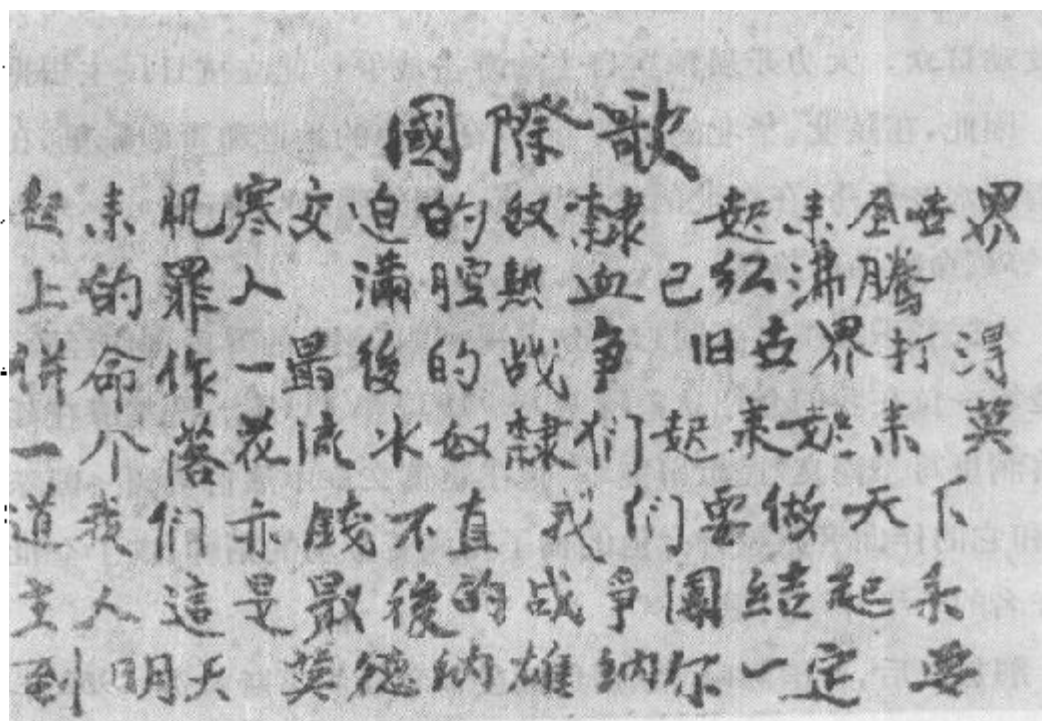 國際歌
起来飢寒交迫的奴隸 起来全世界
上的罪人 滿腔熱血已红沸騰
拼命作一最後的战争 旧世界打得
一个落花流水奴隸们起来起来莫
道我们亦錢不直 我们要做天下
主人這是最後的战争團結起来
到明天 英德纳雄纳尔一定要